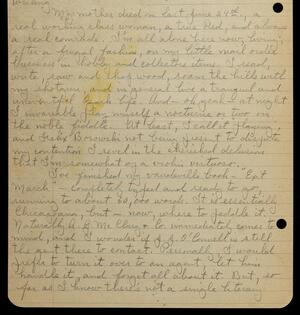 My mother died on last June 24th, a
real working class woman, a true Red, and always
a real comrade. I'm all alone here now, living,
after a frugal fashion, on my little mail order
business in hobby and collectors items. I read,
write, saw and chop wood, roam the hills with
my shotgun, and in general live a tranquil and
life. And - oh yeah - at night
I invariably play myself a nocturne or two on
the noble fiddle. At least, I call it
and not being present to dispute
my contention I revel in the delusion
that I'm somewhat of a violin virtuoso.
I've finished my vaudeville book - "Eat
March" - completely typed and ready to go
running to about 60,000 words. It is essentially
Chicagoana, but - now, where to peddle it.
Naturally A. G. McClurg & Co. immediately comes to
mind, and I wonder if J. S. O'Connell is still
the man there to contact. Personally I would
prefer to turn it over to an agent - let him
handle it, and forget all about it. But, so
far as I know there's not a single literary